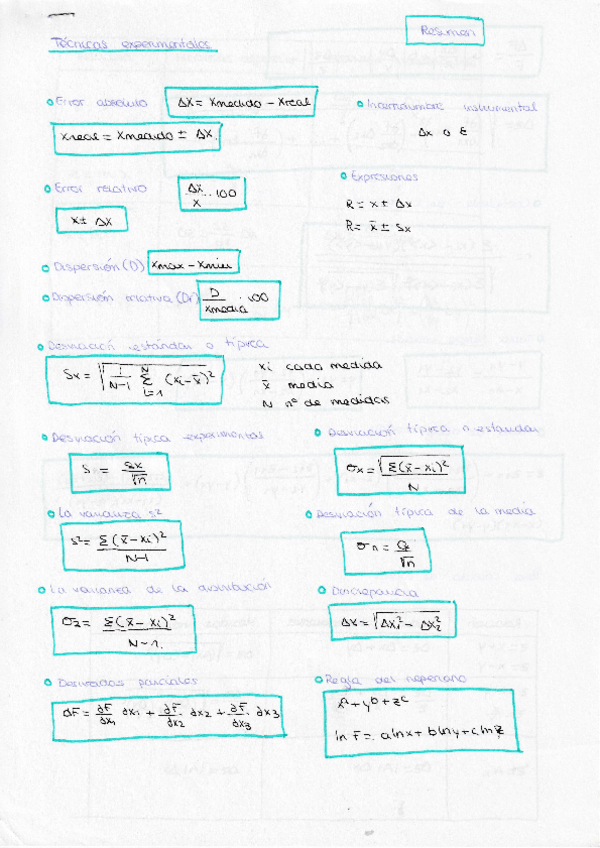 Resumen
Técnicas experimentales
Error absoluto
Δx = xmedido - xreal
xreal = xmedido ± Δx.
Incertidumbre instrumental
Δx o ε
Error relativo
Δx/x · 100
x ± Δx
Expresiones
R = x ± Δx
R = x̄ ± Sx
Dispersión (D)
xmax - xmin
Dispersión relativa (Dr)
D/xmedia · 100
Desviación estándar o típica
Sx = √(1/(N-1) Σ_{i=1}^{N} (xi - x̄)²)
xi cada medida
x̄ media
N nº de medidas
Desviación típica experimental
S = Sx/√n
Desviación típica o estándar
σx = √(Σ(x̄ - xi)²/N)
La varianza s²
s² = Σ(x̄ - xi)²/(N-1)
Desviación típica de la media
σn = /√n
La varianza de la distribución
σ2 = Σ(x̄ - xi)²/(N-1).
Discrepancia
Δx = √(Δx1² - Δx2²)
Derivadas parciales
dF = ∂F/∂x1 ∂x1 + ∂F/∂x2 ∂x2 + ∂F/∂x3 ∂x3
Regla del neperiano
A + yb + zc
ln F = a ln x + b ln y + c ln z